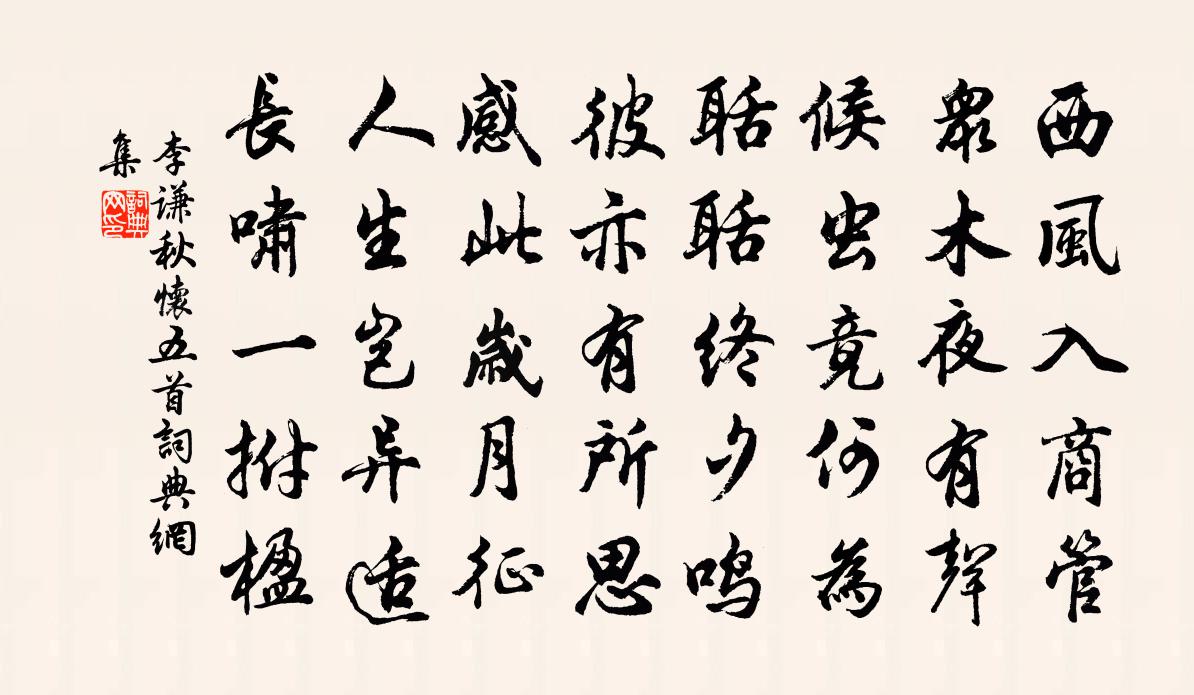 西風入商管
衆木夜有聲
候虫竟何為
聒聒終夕鳴
彼亦有所思
感此歲月征
人生岂异适
長嘯一拊楹
李谦秋懷五首詞典網
集
詞典
网印